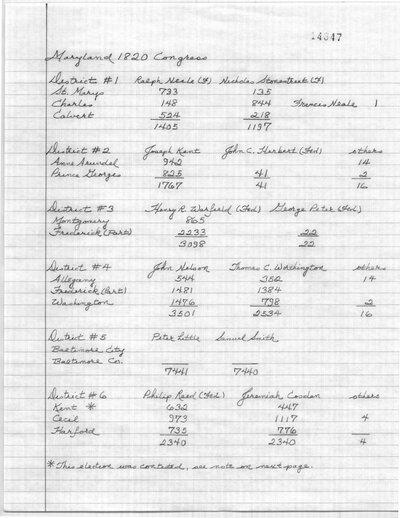 14647
Maryland 1820 Congress
District #1 Ralph Neale (F) Nicholas Stonestreet (F)
St. Marys 733 135
Charles 148 844 Frances Neale 1
Calvert 524 218
1405 1197
District #2 Joseph Kent John C. Herbert (Fed) others
Anne Arundel 942 14
Prince Georges 825 41 2
1767 41 16
District #3 Henry R. Warfield (Fed) George Peter (Fed)
Montgomery 865
Frederick (Part) 2233 22
3098 22
District #4 John Nelson Thomas C. Worthington others
Allegany 544 352 14
Frederick (Part) 1481 1384
Washington 1476 798 2
3501 2534 16
District #5 Peter Little Samuel Smith
Baltimore City
Baltimore Co.
7441 7440
District #6 Philip Reed (Fed) Jeremiah Cosden others
Kent * 632 447
Cecil 973 1117 4
Harford 735 776
2340 2340 4
* This election was contested, see note on next page.